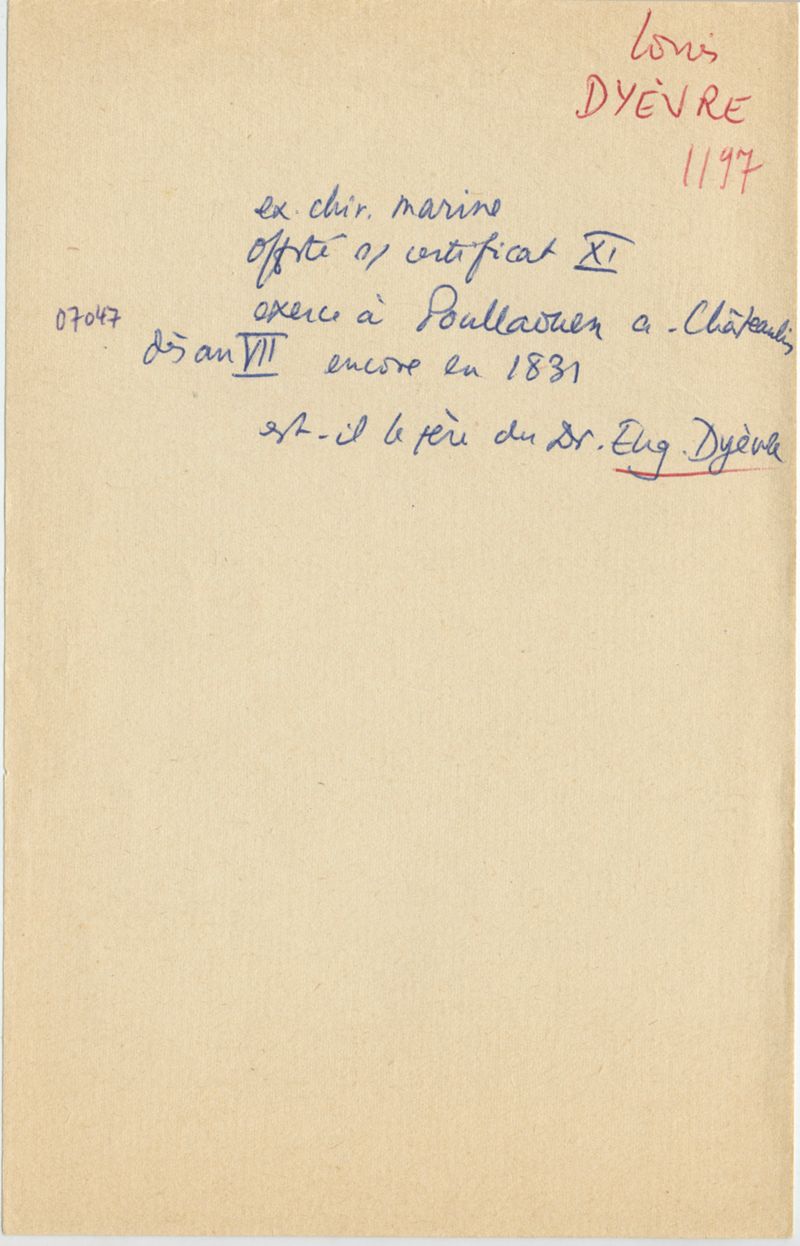 Louis
DYÈVRE
1197
ex. chir. marine
certificat XI
07047
exerce à Poullaouen a. Châteaulin
dès an VII encore en 1831
est-il le père du Dr. Eug. Dyèvre